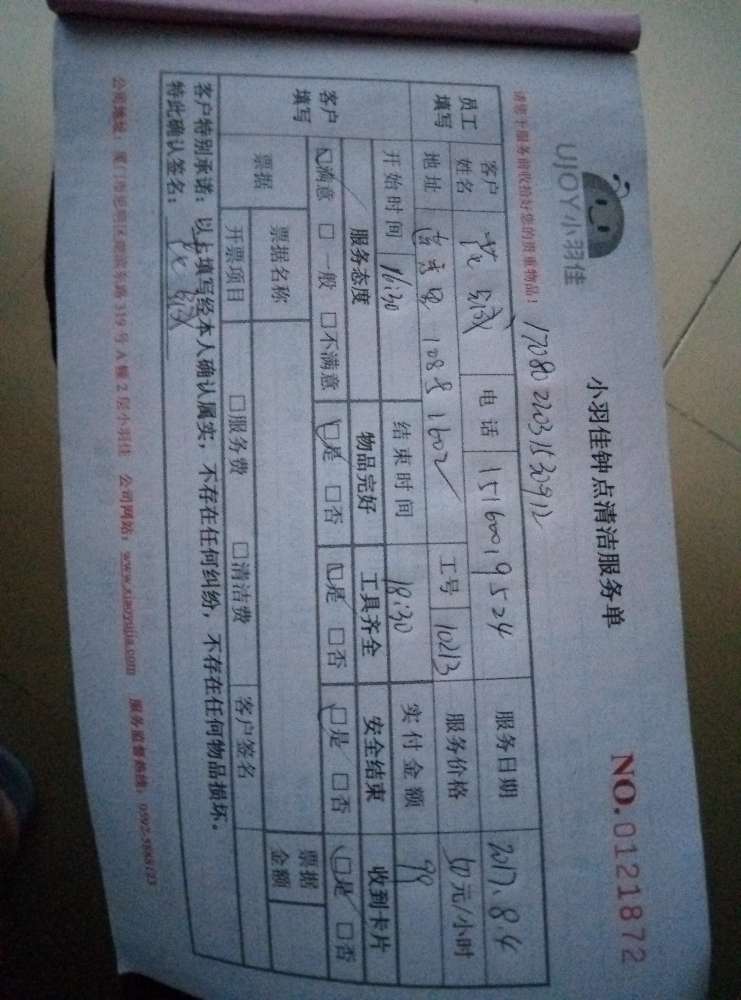 UJOY小羽佳
小羽佳钟点清洁服务单
NO.0121872
请您于服务前收拾好您的贵重物品!
员工填写 客户姓名 电话 15160019524 服务日期 2017.8.4
地址 108号1602 工号 10213 服务价格 50元/小时
开始时间 16:30 结束时间 18:30 实付金额 99
客户填写 服务态度 物品完好 工具齐全 安全结束 收到卡片
☑满意 □一般 □不满意 ☑是 □否 ☑是 □否 ☑是 □否 ☑是 □否
票据 票据名称 票据金额
开票项目 □服务费 □清洁费 客户签名
客户特别承诺:以上填写经本人确认属实,不存在任何纠纷,不存在任何物品损坏。
特此确认签名:
公司地址:厦门市思明区 319号A幢2层小羽佳 公司网站:www.xiaoyujia.com 服务监督热线: